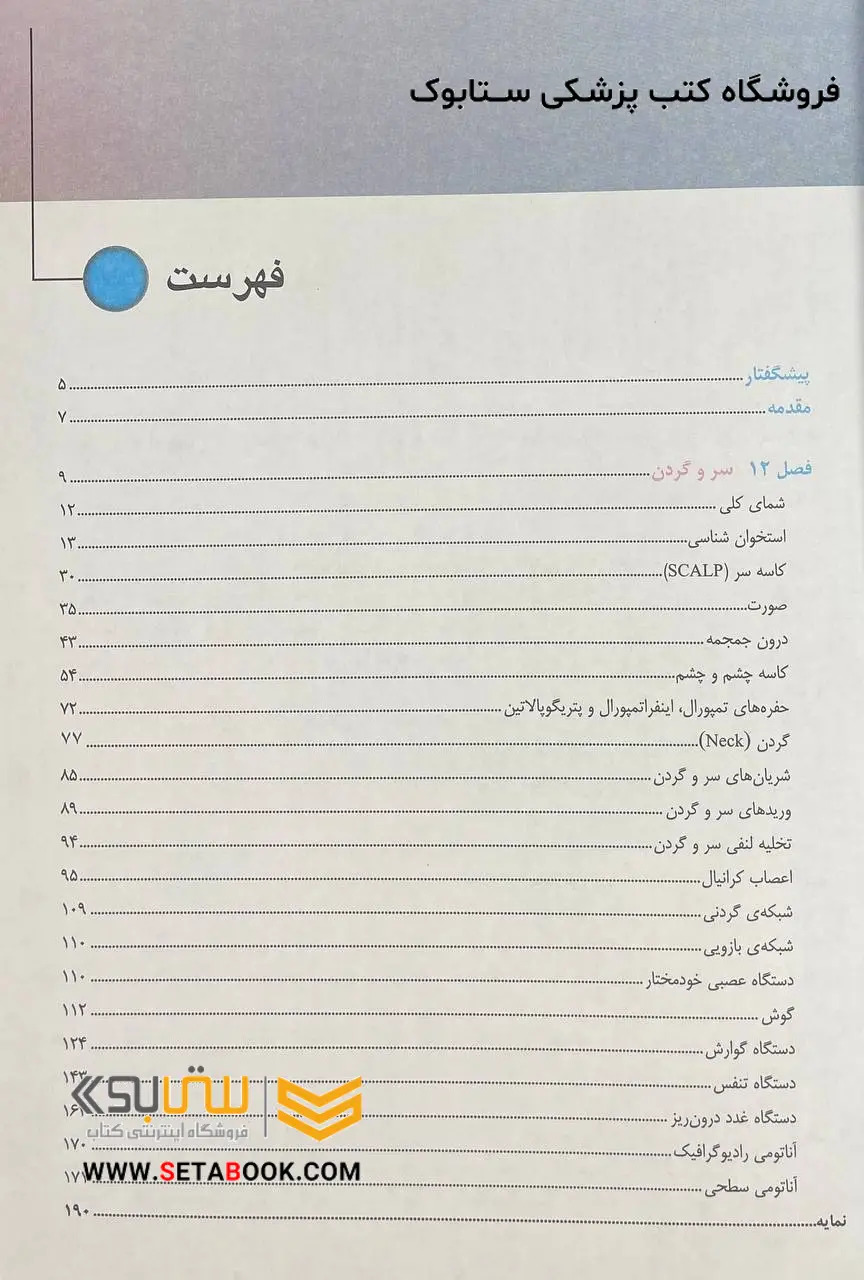 فروشگاه کتب پزشکی ستابوک
فهرست
پیشگفتار ۵
مقدمه ۷
فصل ۱۲ سر و گردن ۹
شمای کلی ۱۲
استخوان شناسی ۱۳
کاسه سر (SCALP) ۳۰
صورت ۳۵
درون جمجمه ۴۳
کاسه چشم و چشم ۵۴
حفره‌های تمپورال، اینفراتمپورال و پتریگوپالاتین ۷۲
گردن (Neck) ۷۷
شریان‌های سر و گردن ۸۵
وریدهای سر و گردن ۸۹
تخلیه لنفی سر و گردن ۹۴
اعصاب کرانیال ۹۵
شبکه‌ی گردنی ۱۰۹
شبکه‌ی بازویی ۱۱۰
دستگاه عصبی خودمختار ۱۱۰
گوش ۱۱۲
دستگاه گوارش ۱۲۴
دستگاه تنفس ۱۴۳
دستگاه غدد درون‌ریز ۱۶۱
آناتومی رادیوگرافیک ۱۷۰
آناتومی سطحی
نمایه ۱۹۰
ستابوک
فروشگاه اینترنتی کتاب
WWW.SETABOOK.COM